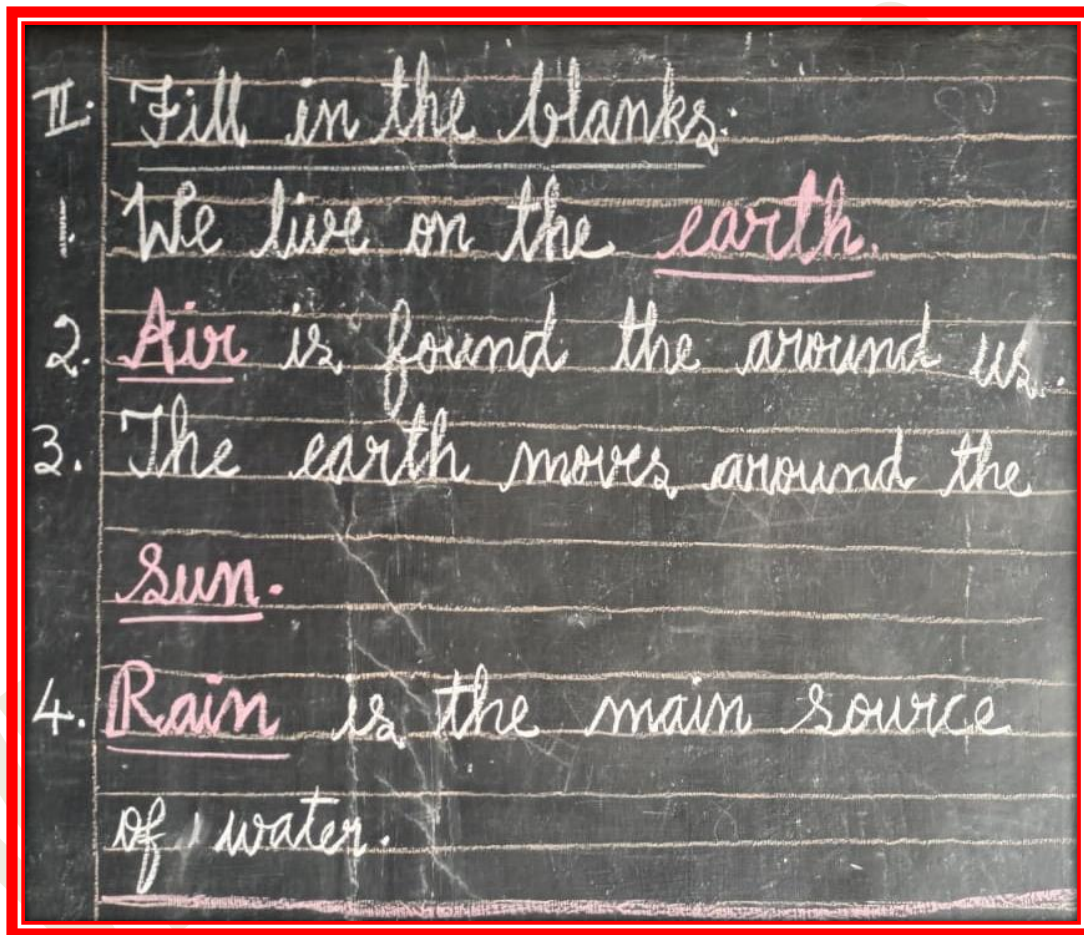 II. Fill in the blanks.
1. We live on the earth.
2. Air is found the around us.
3. The earth moves around the
sun.
4. Rain is the main source
of water.